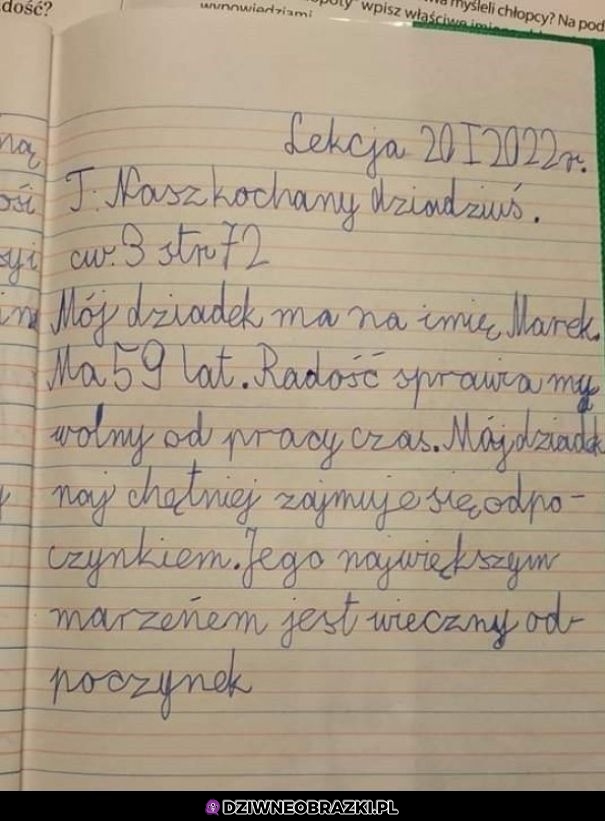 dość?
wypowiedziami
wpisz właściwe
myśleli chłopcy? Na pod
ną
ości
Lekcja 20 I 2022r.
T: Nasz kochany dziadziuś.
ćw. 3 str 72
Mój dziadek ma na imię Marek.
Ma 59 lat. Radość sprawia my
wolny od pracy czas. Mój dziadek
naj chętniej zajmuje się odpo-
czynkiem. Jego największym
marzeńem jest wieczny od-
poczynek
DZIWNEOBRAZKI.PL